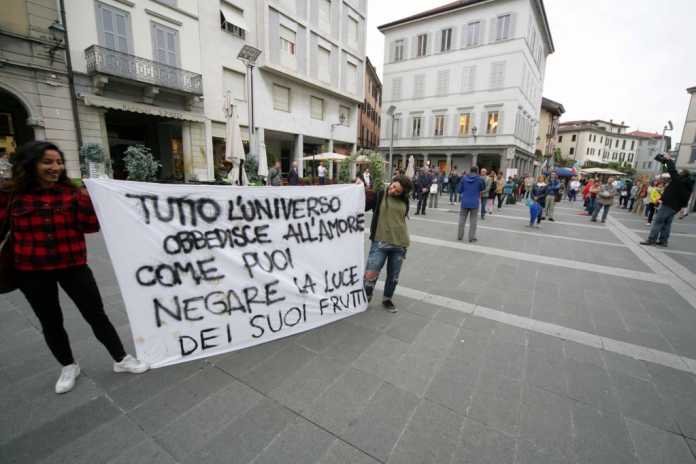 TUTTO L'UNIVERSO
OBBEDISCE ALL'AMORE
COME PUOI
NEGARE LA LUCE
DEI SUOI FRUTTI